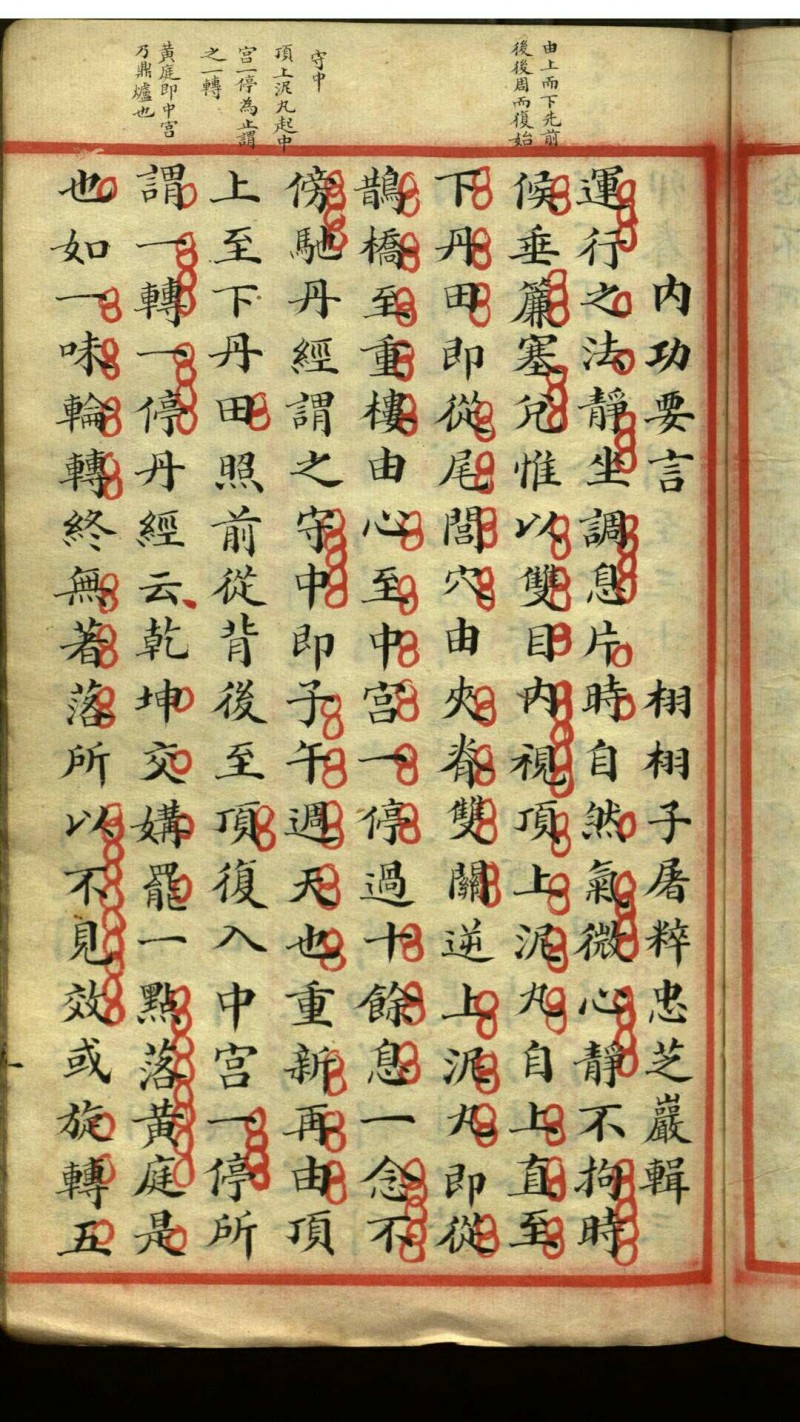 由上而下先前
後後周而復始
守中
頂上泥丸起中
宮一停為止謂
之一轉
黃庭即中宮
乃鼎爐也
內功要言　栩栩子屠粹忠芝巖輯
運行之法靜坐調息片時自然氣微心靜不拘時
候垂簾塞兌惟以雙目內視頂上泥丸自上直至
下丹田即從尾閭穴由夾脊雙關逆上泥丸即從
鵲橋至重樓由心至中宮一停過十餘息一念不
傍馳丹經謂之守中即子午週天也重新再由頂
上至下丹田照前從背後至頂復入中宮一停所
謂一轉一停丹經云乾坤交媾罷一點落黃庭是
也如一味輪轉終無著落所以不見效或旋轉五